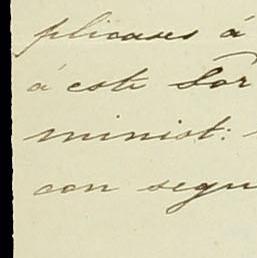 plicases á
á este Sor
minist:
con segu